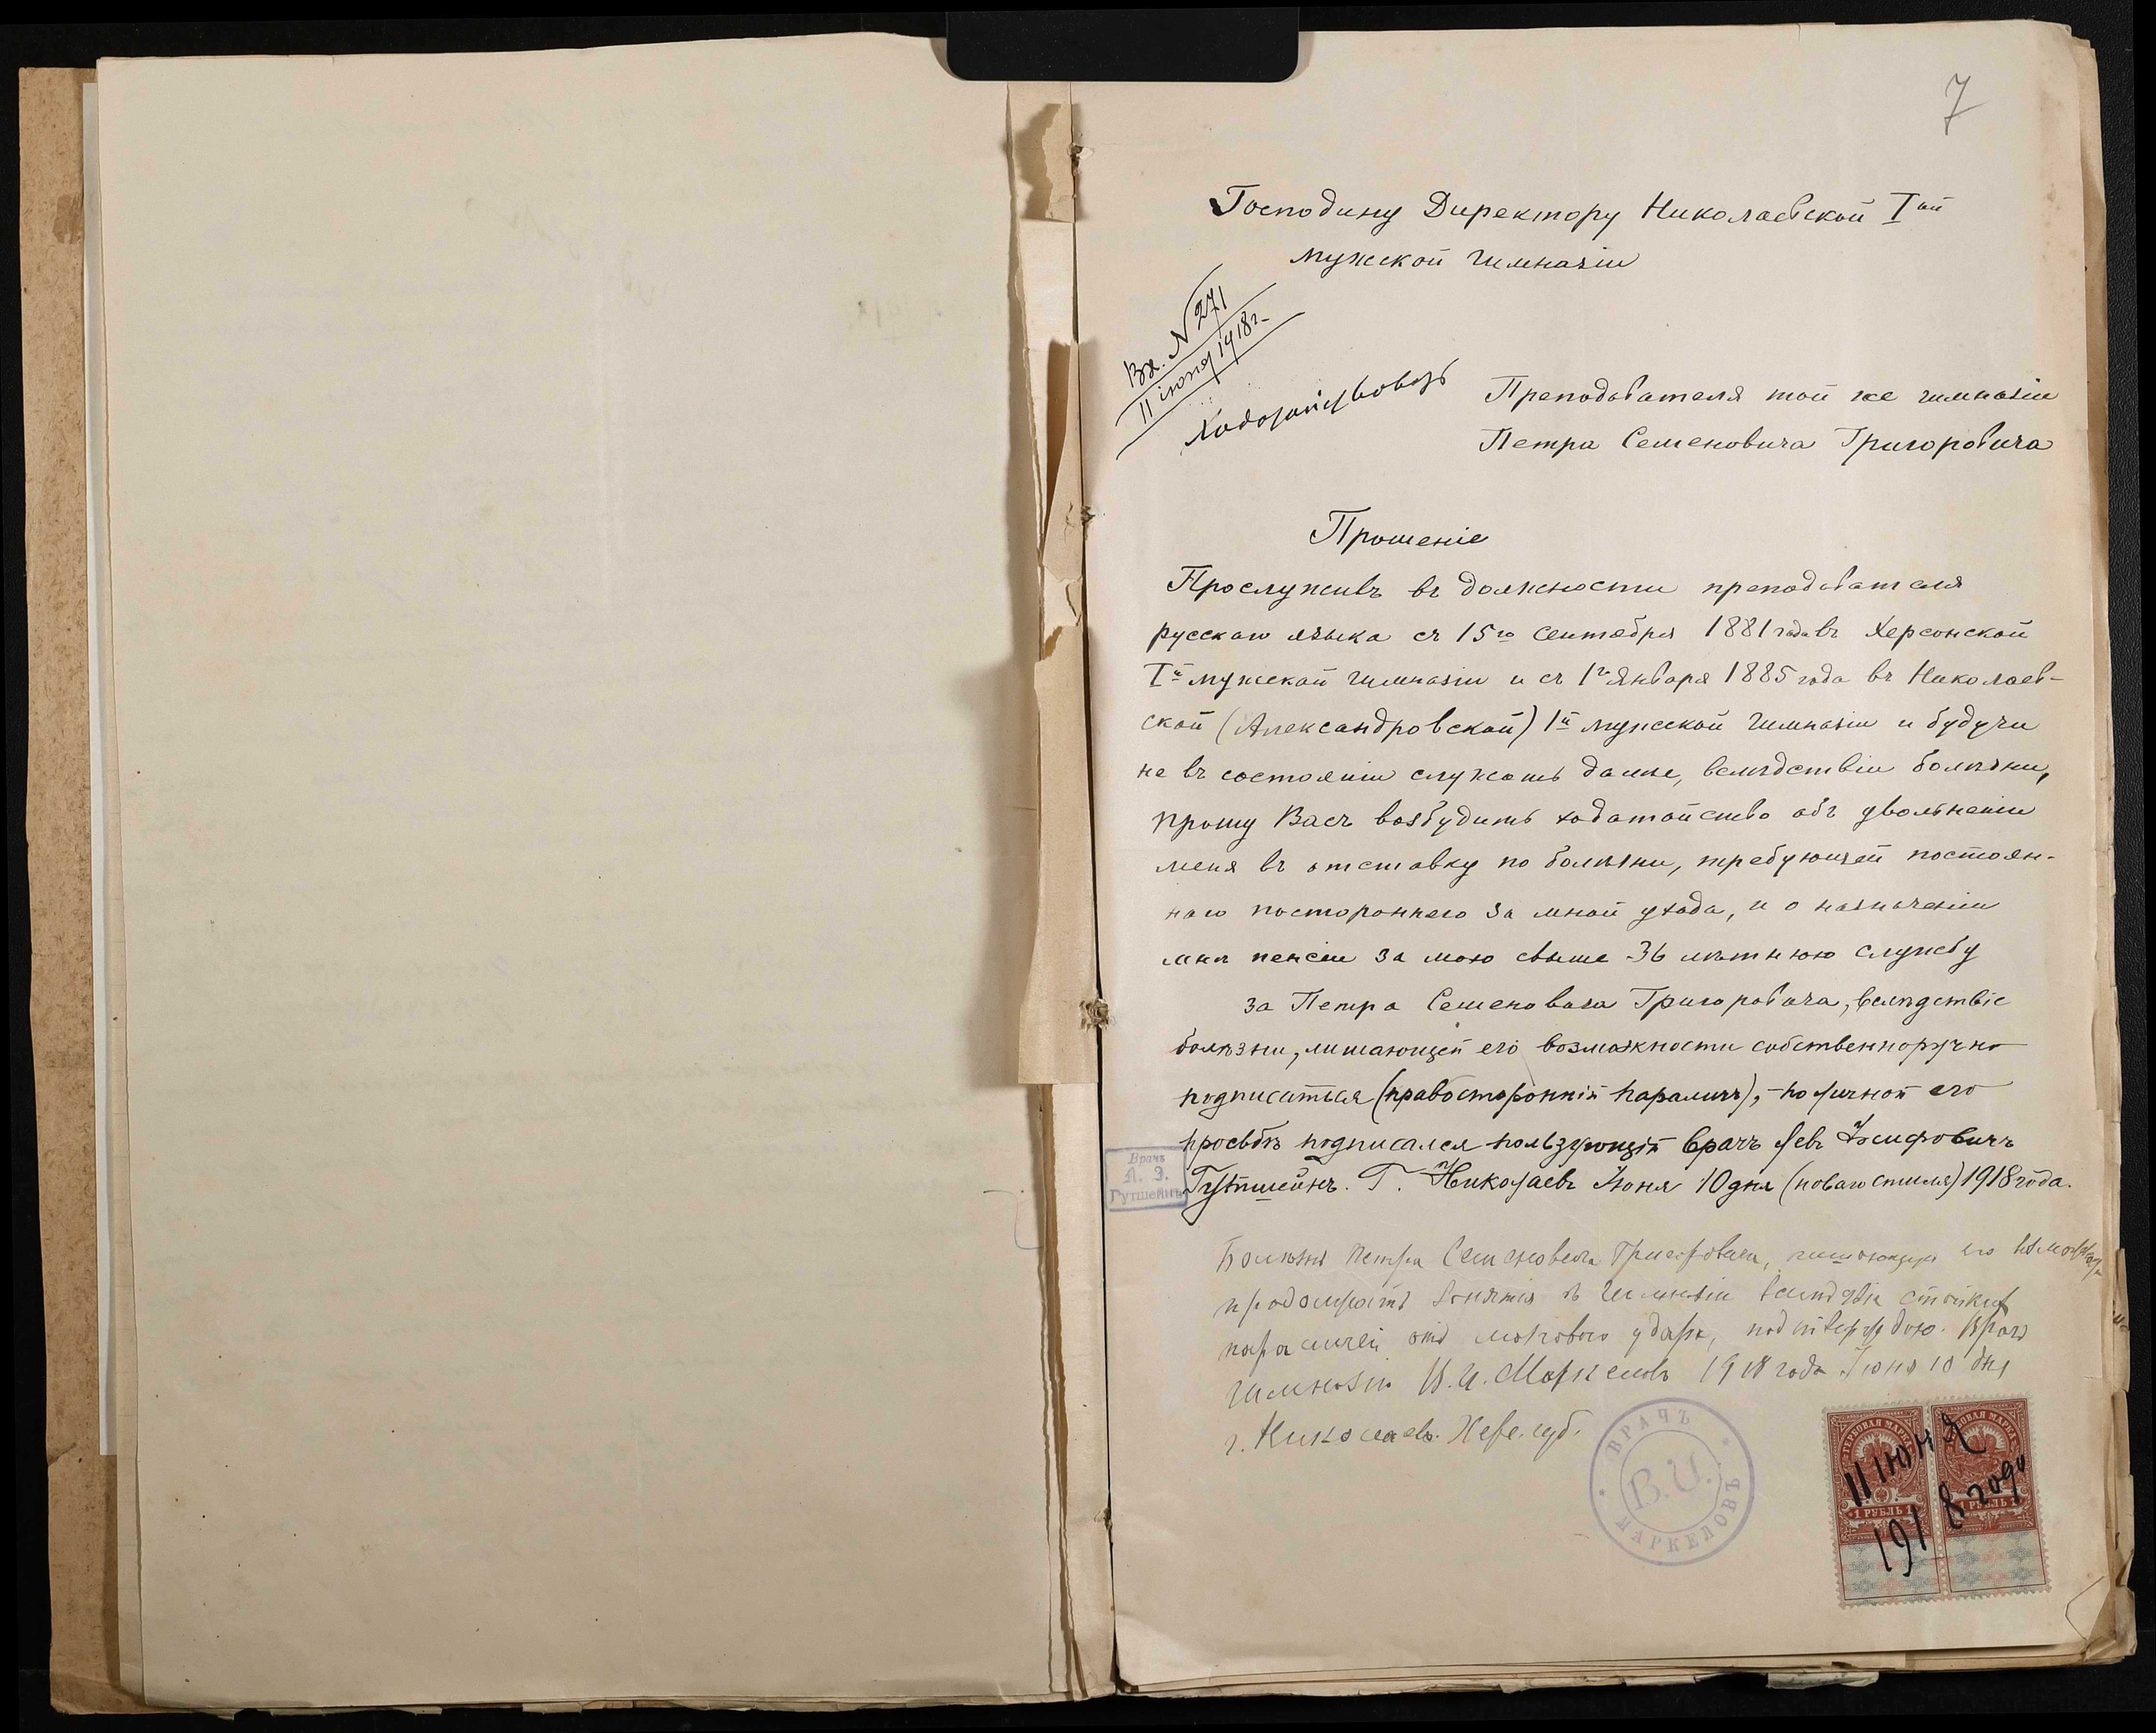 7
Господину Директору Николаевской Iой
мужской гимназіи
Вх. N 271
11 іюня 1918 г.
Ходатайствовать
Преподавателя той же гимназіи
Петра Семеновича Григоровича
Прошеніе
Прослуживъ въ должности преподавателя
русскаго языка съ 15го Сентября 1881 года въ Херсонской
Iй мужской гимназіи и съ 1го Января 1885 года въ Николаев-
ской (Александровской) 1й мужской гимназіи и будучи
не въ состояніи служить далѣе, вслѣдствіи болѣзни,
прошу Васъ возбудить ходатайство объ увольненіи
меня въ отставку по болѣзни, требующей постоян-
наго посторонняго за мной ухода, и о назначеніи
мнѣ пенсіи за мою свыше 36 лѣтнюю службу
за Петра Семеновича Григоровича, вслѣдствіе
болѣзни, лишающей его возможности собственноручно
подписаться (правосторонній параличъ), – по личной его
просьбѣ подписался пользующій врачъ Левъ Іосифовичъ
Гутштейнъ. Г. Николаевъ Іюня 10 дня (новаго стиля) 1918 года.
Врачъ
Л. Э.
Гутшейнъ
Болѣзнь Петра Семеновича Григоровича, лишающую его
продолжать занятія въ гимназіи вслѣдствіе стойкихъ
параличей отъ мозгового удара, подтверждаю. Врачъ
гимназіи В. И. Маркеловъ 1918 года Іюня 10 дня
г. Николаевъ Херс. губ.
ВРАЧЪ
В.И.
МАРКЕЛОВЪ
ГЕРБОВАЯ МАРКА ГЕРБОВАЯ МАРКА
11 іюня
1 РУБЛЬ 1 1 РУБЛЬ 1
1918 года